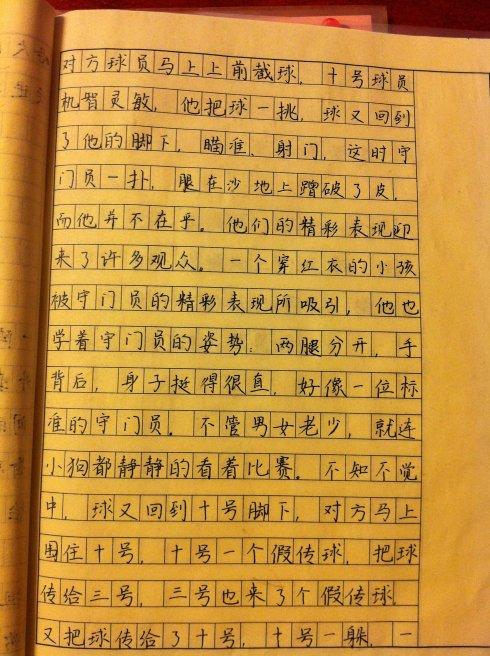 对方球员马上上前截球，十号球员
机智灵敏，他把球一挑，球又回到
了他的脚下，瞄准、射门，这时守
门员一扑，腿在沙地上蹭破了皮，
而他并不在乎。他们的精彩表现迎
来了许多观众。一个穿红衣的小孩
被守门员的精彩表现所吸引，他也
学着守门员的姿势：两腿分开，手
背后，身子挺得很直，好像一位标
准的守门员。不管男女老少，就连
小狗都静静的看着比赛。不知不觉
中，球又回到十号脚下，对方马上
围住十号，十号一个假传球，把球
传给三号，三号也来了个假传球，
又把球传给了十号，十号一躲，一